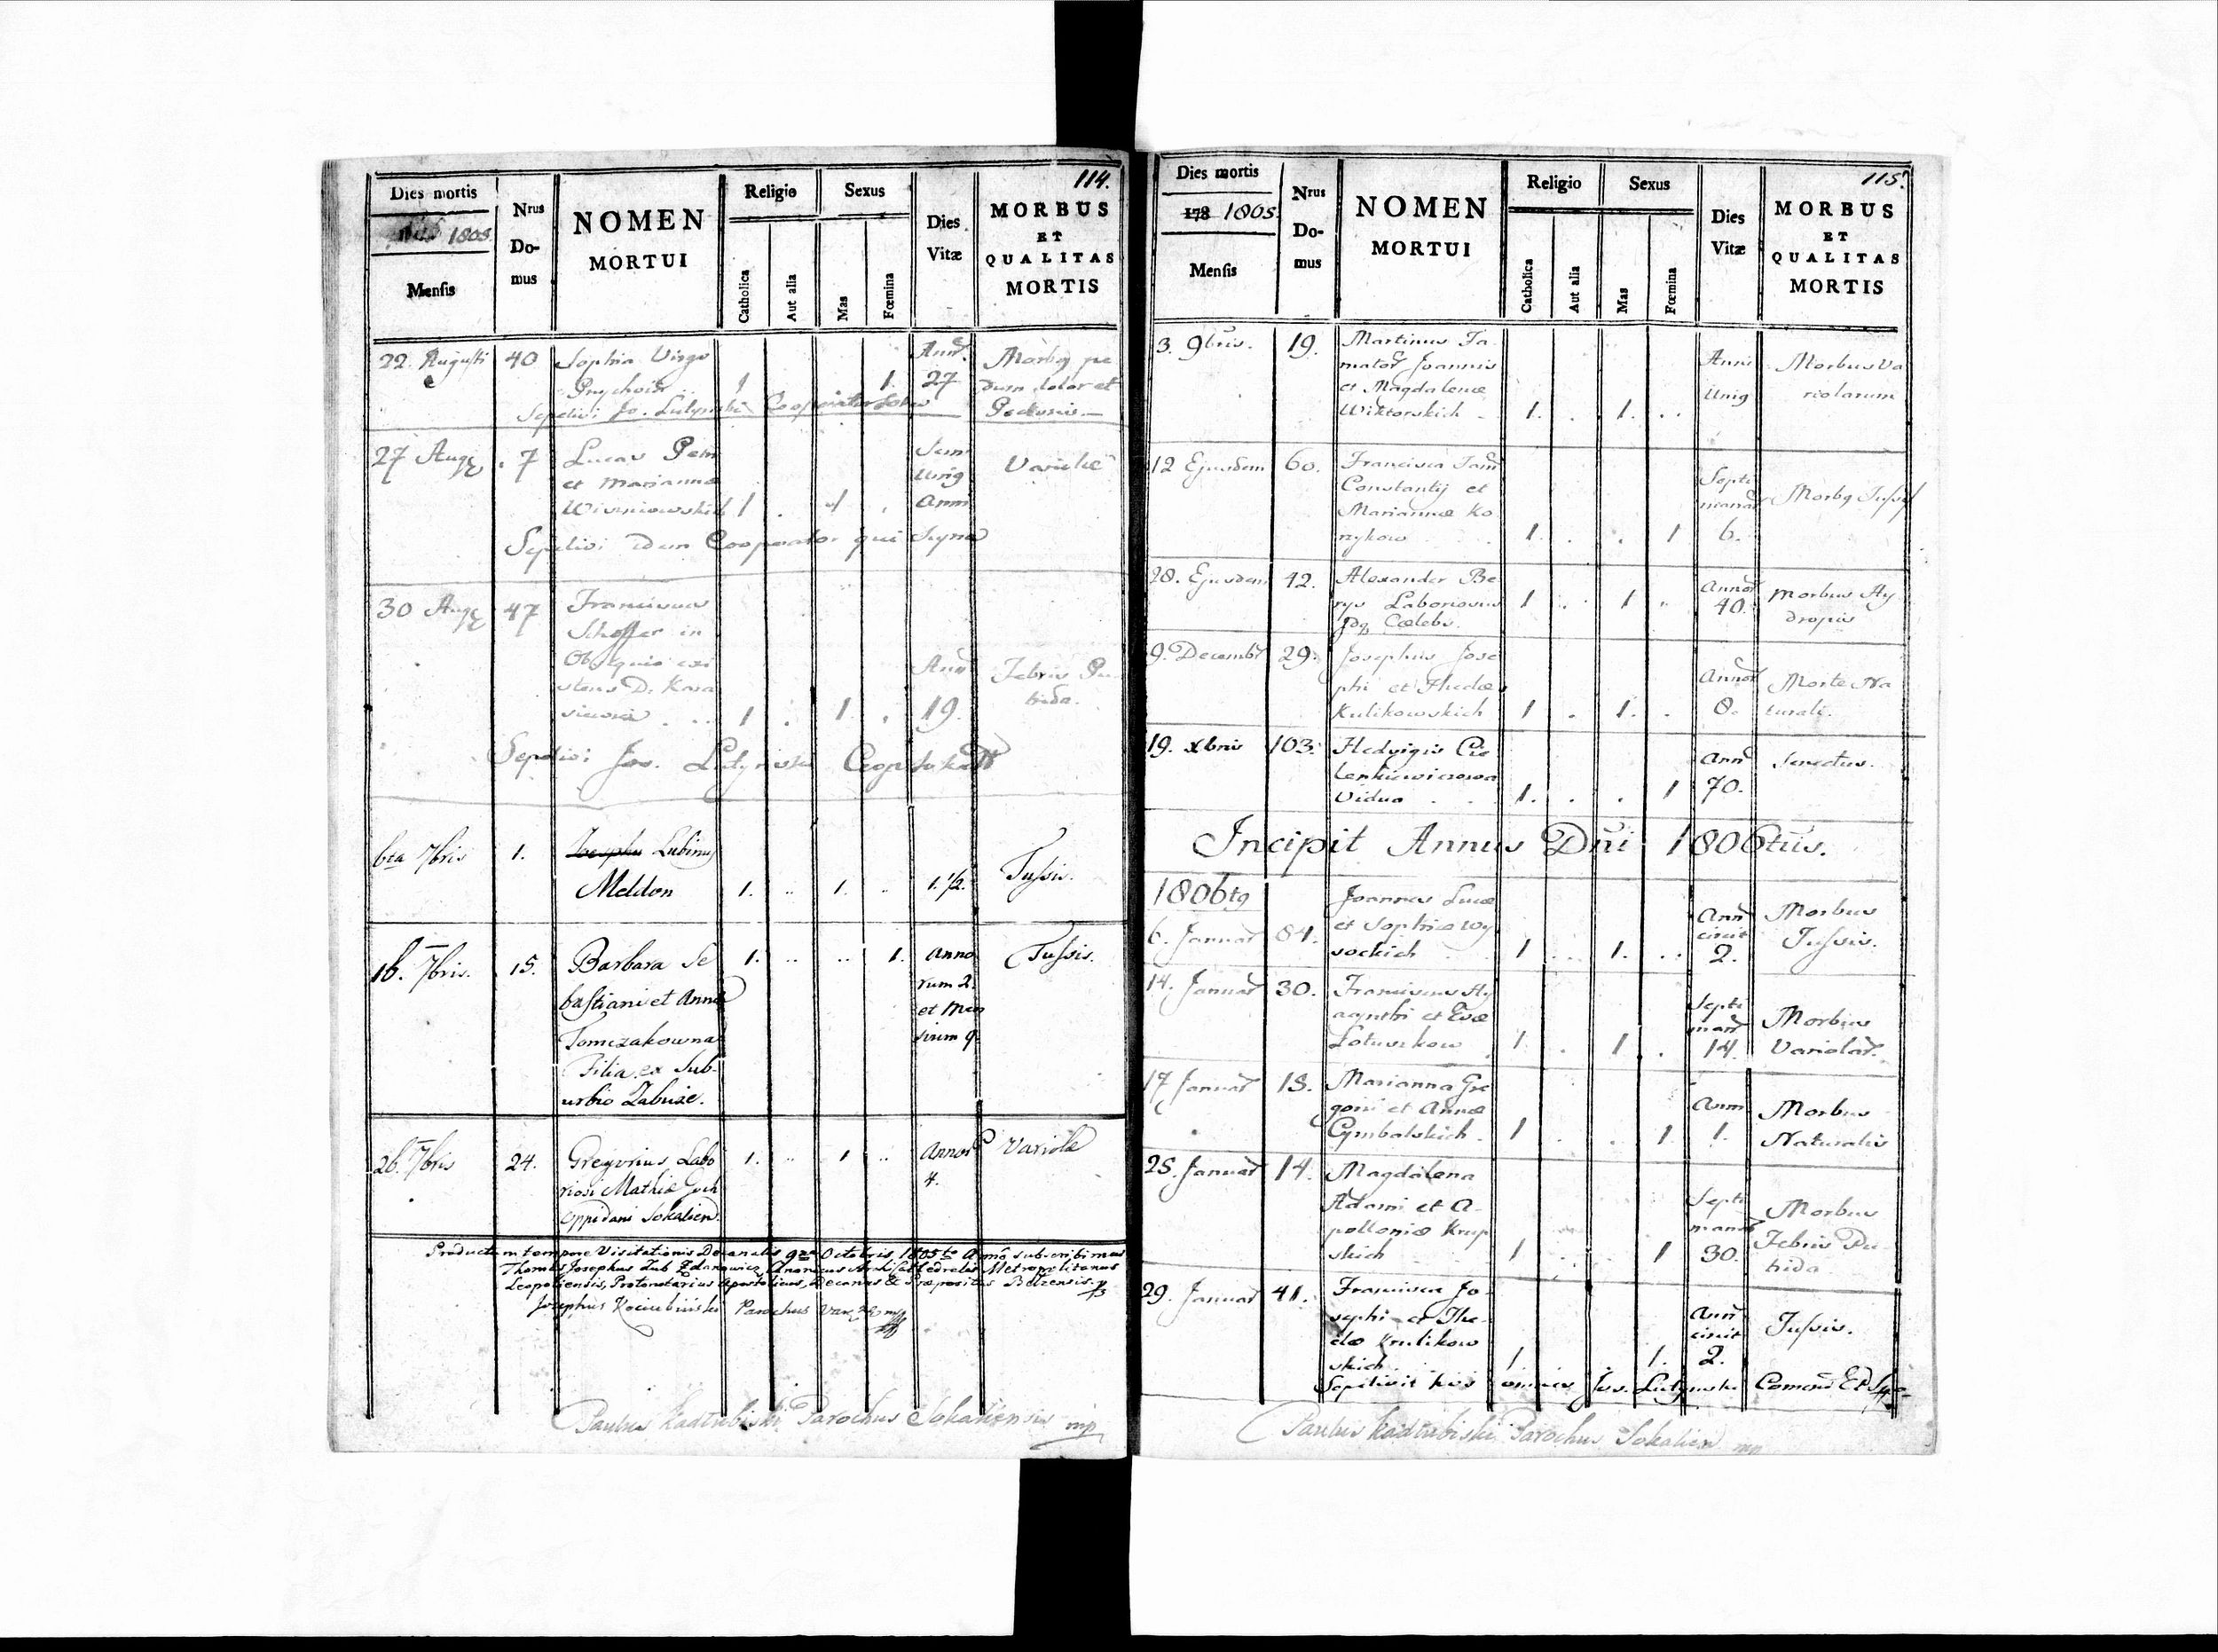 114.
Dies mortis
1805
Mensis
Nrus
Do-
mus
NOMEN
MORTUI
Religio
Catholica
Aut alia
Sexus
Mas
Fœmina
Dies
Vitæ
MORBUS
ET
QUALITAS
MORTIS
22. Augusti 40 Sophia Virgo
1 1. 27
Sepelivi Jo. Lutynski Cooperator
27 Augę 7 Lucas Petri
et Mariannæ
Wisniowskich 1 . 1 .
Unig
Anni
Sepelivi idem Cooperator qui supra
30 Augę 47 Franciscus
Schoffer in
Obsequio exi
stens D. Kara
1 . 1 . 19.
Febris Pu
trida.
Sepelivi Jos. Lutynski
6ta 7bris 1. Josephus Lubinus
Meldon 1. .. 1. .. 1. 1/2. Tussis.
16. 7bris. 15. Barbara Se
bastiani et Annæ
Tomczakowna
Filia ex Sub-
urbio Zabuże.
1. .. .. 1. Anno
rum 2.
et Men
sium 9.
Tussis.
26. 7bris 24. Gregorius Labo
riosi Mathiæ
Oppidani Sokalien.
1. .. 1 .. Annor
4.
Variolæ
Productum tempore Visitationis Decanalis 9na Octobris 1805to Anno subscribimus
Thomas Josephus Dub Zdanowicz Canonicus Archicathedralis Metropolitanus
Leopoliensis, Protonotarius Apostolicus, Decanus & Præpositus Belzensis. mp
Josephus Parochus
Paulus Kadłubiski Parochus Sokaliensis mp
115.
Dies mortis
178 1805.
Mensis
Nrus
Do-
mus
NOMEN
MORTUI
Religio
Catholica
Aut alia
Sexus
Mas
Fœmina
Dies
Vitæ
MORBUS
ET
QUALITAS
MORTIS
3. 9bris. 19. Martinus Fa
mator Joannis
et Magdalenæ
Wiktorskich . 1. . 1. ..
Anni
Unig
Morbus Va
riolarum
12 Ejusdem 60. Francisca Fam
Constantij et
Mariannæ Ko
nykow . . 1. . . 1
Septi
manar
6.
Morbg Tussis
28. Ejusdem 42. Alexander Be
rys Laboriosus
Jdq Cœlebs.
1 .. 1 ..
Annor
40.
Morbus Hy
dropis
9. Decembr 29. Josephus Jose
phi et Theclæ
Kulikowskich 1 . 1. .
Annor
8.
Morte Na
turali.
19. Xbris 103. Hedvigis Cie
lenkiewiczowa
Vidua . . 1. . . 1
Ann
70.
Senectus.
Incipit Annus Dni 1806tus.
1806tg
6. Januar 84. Joannes Lucæ
et Sophiæ Wy
sockich . . 1 .. 1. ..
Ann
circit
2.
Morbus
Tussis.
14. Januar 30. Franciscus Hy
acynthi et Evæ
Lotuszkow . 1. . 1 .
Septi
manar
14.
Morbus
Variolar.
17 Januar 18. Marianna Gre
gorii et Annæ
Cymbalskich . 1 . . 1.
Anni
1.
Morbus
Naturalis
25. Januar 14. Magdalena
Adami et A-
polloniæ Krup
skich 1 . . 1
Septi
manar
30.
Morbus
Febris Pu
trida
29. Januar 41. Francisca Jo
sephi et The-
clæ Krulikow
skich . 1. 1.
Ann
circit
2.
Tussis.
Sepelivit hos omnes Jos. Lutynski Comend
Paulus Kadłubiski Parochus Sokalien mp